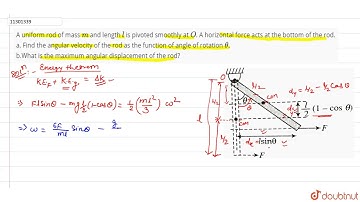 11301339
A uniform rod of mass m and length l is pivoted smoothly at O. A horizontal force acts at the bottom of the rod.
a. Find the angular velocity of the rod as the function of angle of rotation θ.
b. What is the maximum angular displacement of the rod?
Solⁿ:- Energy theorem
KE_F + KE_g = ΔK
⇒ F l sinθ - mg l/2 (1-cosθ) = 1/2 (ml²/3) ω²
⇒ ω = 6F/ml sinθ - 3
O
l/2
θ
com
d_y = l/2 - l/2 cosθ
l
l/2
com
d_y
l/2 (1 - cos θ)
l/2
d_x = l sinθ
F
F
doubtnut